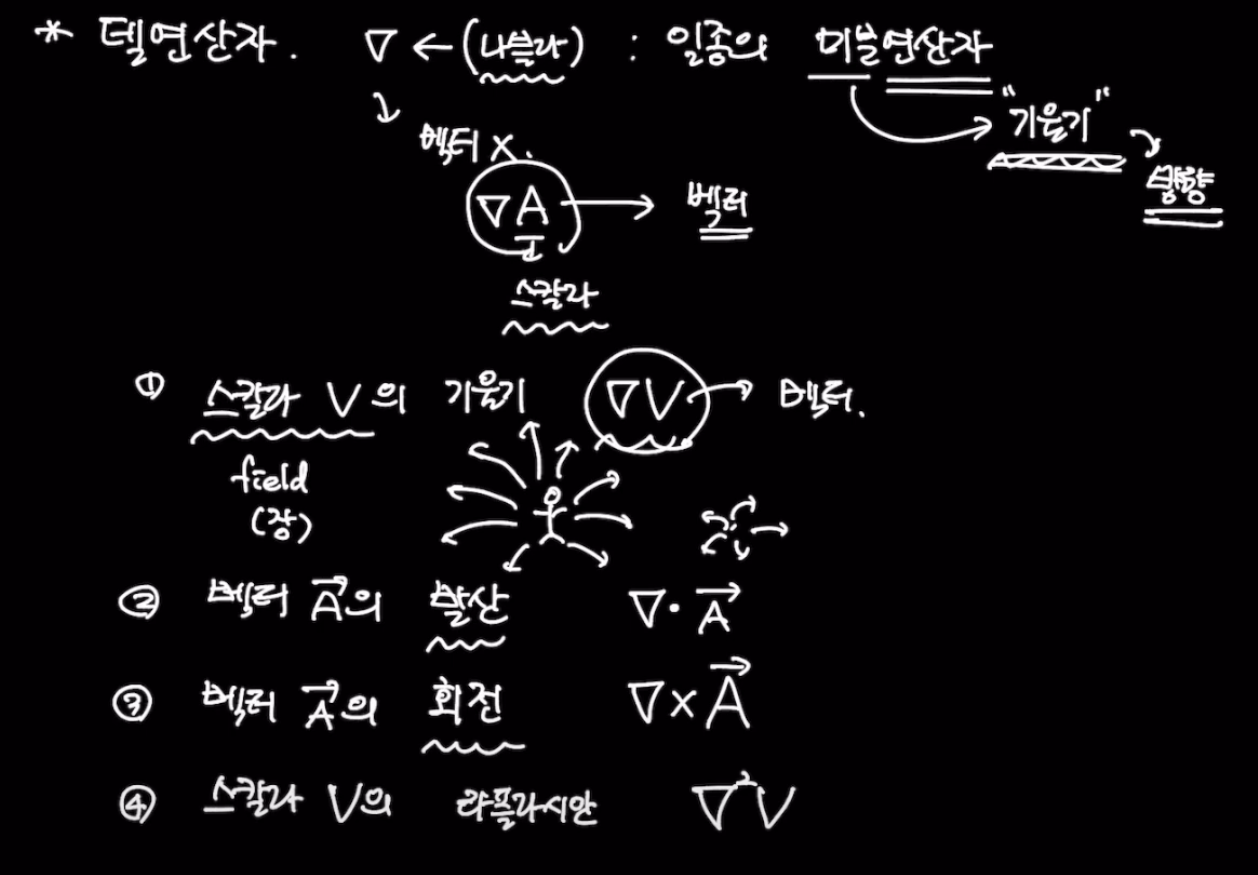 * 델연산자. ∇ ← (나블라) : 일종의 미분연산자
"기울기"
방향
벡터 X.
∇A → 벡터
스칼라
① 스칼라 V의 기울기 ∇V → 벡터.
field
(장)
② 벡터 A⃗의 발산 ∇・A⃗
③ 벡터 A⃗의 회전 ∇×A⃗
④ 스칼라 V의 라플라시안 ∇²V